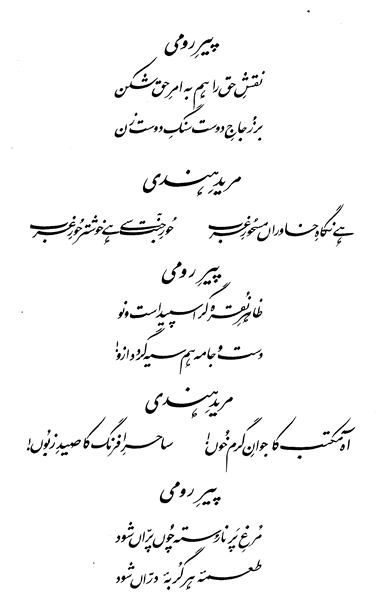 پیرِ رومی
نقشِ حق را ہم بہ امرِ حق شکن
بر زُجاجِ دوست سنگِ دوست زن
مریدِ ہندی
ہے نگاہِ خاوراں مسحورِ غرب حورِ جنّت سے ہے خوشتر حورِ غرب
پیرِ رومی
ظاہرِ نُقرہ گر اسپید است و نو
دست و جامہ ہم سیہ گردد ازو!
مریدِ ہندی
آہ مکتب کا جوانِ گرم خُوں! ساحرِ افرنگ کا صیدِ زبُوں!
پیرِ رومی
مُرغِ پَر نارُستہ چُوں پرّاں شود
طعمۂ ہر گُربۂ درّاں شود